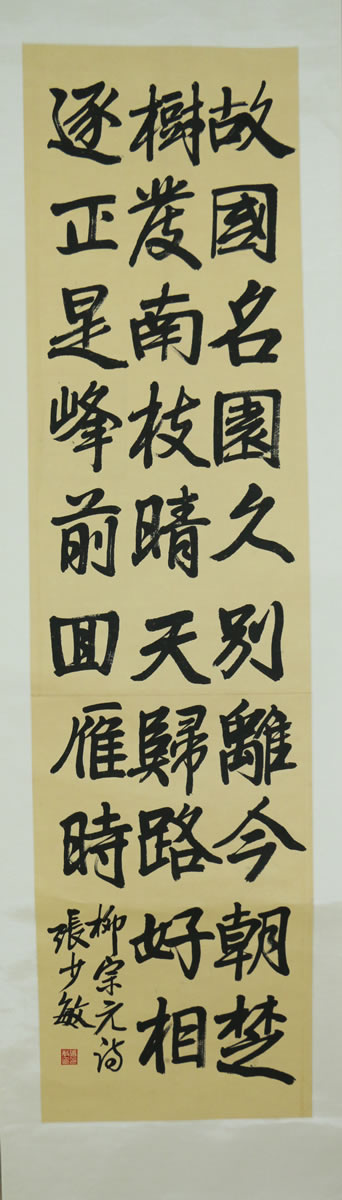 故國名園久別離今朝楚
樹發南枝晴天歸路好相
逐正是峰前回雁時
柳宗元詩
張少敏